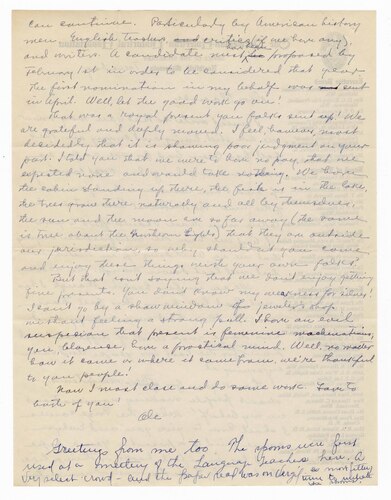 can continue. Particularly by American history
men, English teachers and critics (if we have any),
and writers. A candidate must be proposed by
February 1st in order to be considered that year.
The first nomination in my behalf was sent
in April. Well, let the good work go on!
That was a royal present you folks sent up! We
are grateful and deeply moved. I feel, however, most
decidedly that it is showing poor judgment on your
part. I told you that we were to have no pay, that we
expected none and would take nothing. We have
the cabin standing up there, the fish is in the lake,
the trees grow there naturally and all by themselves,
the sun and the moon are so far away (the same
is true about the Northern Lights) that they are outside
our jurisdiction, so why shouldn't you come
and enjoy these things with your own folks?
But that isn't saying that we don't enjoy getting
fine presents. You don't know my weakness for silver!
I can't go by a show window of a jeweler's shop
without feeling a strong pull. I have an evil
suspicion that present is feminine machinations,
you, Clarence, have a practical mind. Well, no matter
how it came or where it came from, we're thankful
to you people!
Now I must close and do some work. Love to
both of you!
Ole
Greetings from me too. The spoons were first
used at a meeting of the Language Teachers here. A
very select crowd - and the paper read was on
so most fitting